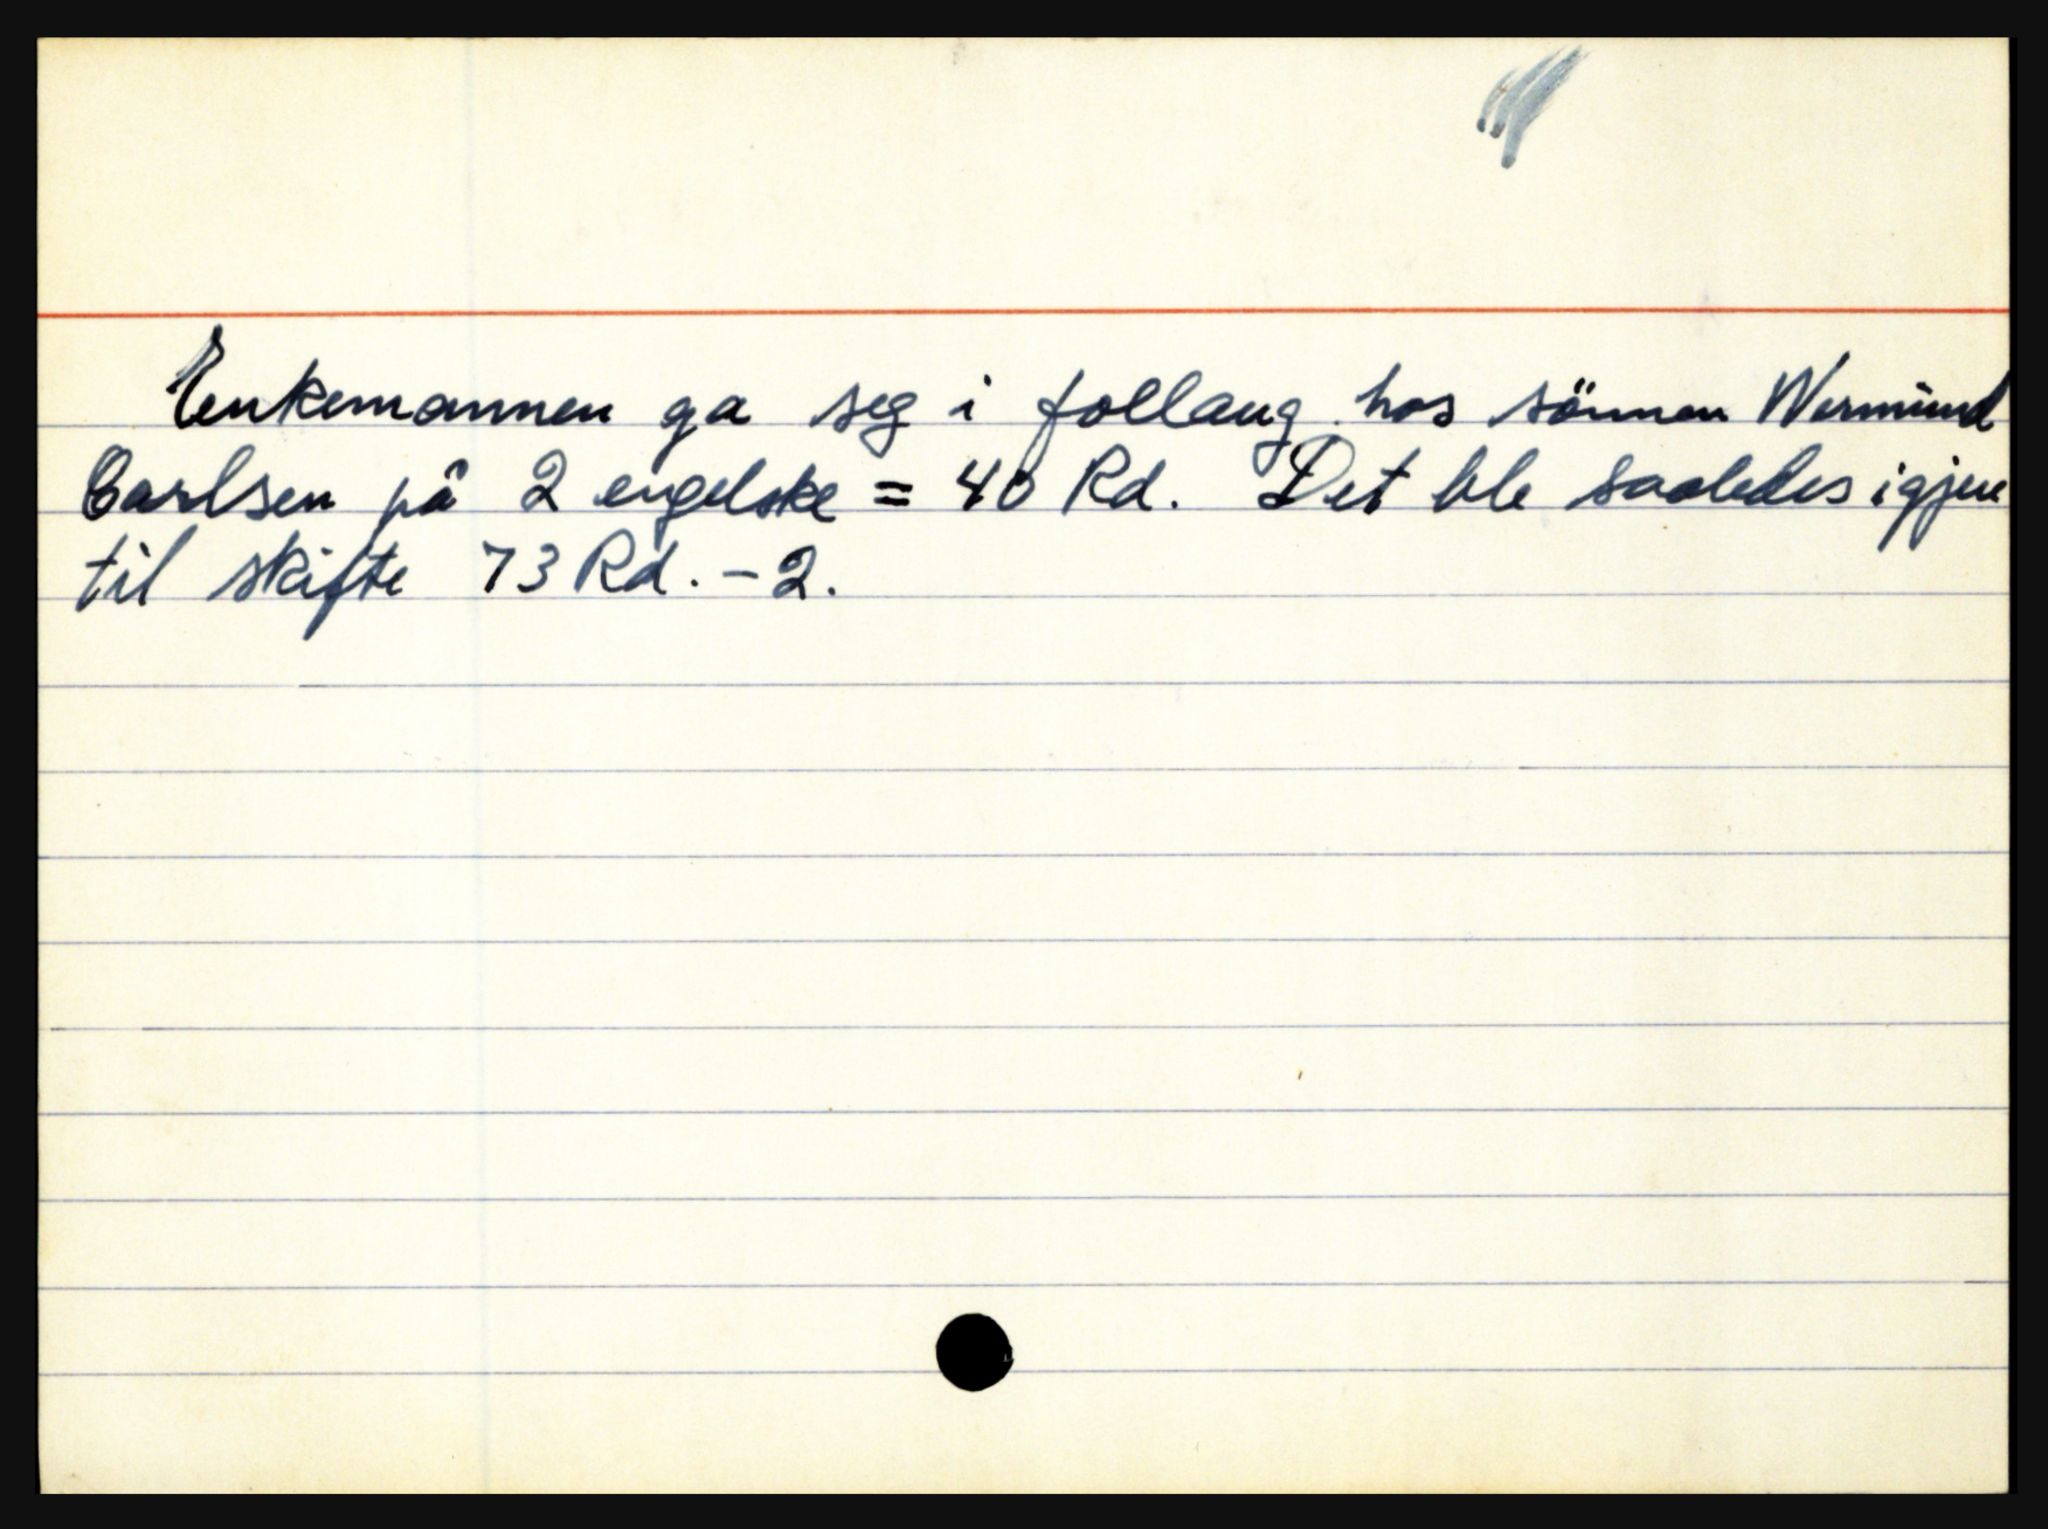 Enkemannen ga seg i follaug hos sönnen Wermund
Carlsen på 2 engelske = 40 Rd. Det ble saaledes igjen
til skifte 73 Rd. - 2.